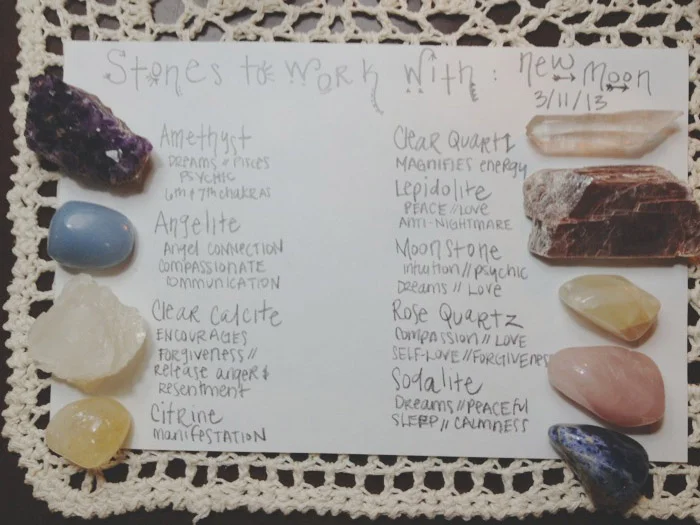 Stones to work with: new moon
3/11/13
Amethyst
DREAMS // PISCES
PSYCHIC
6th & 7th CHAKRAS
Angelite
Angel CONNECTION
COMPASSIONATE
COMMUNICATION
Clear Calcite
ENCOURAGES
FORGIVENESS //
release anger &
resentment
Citrine
MANIFESTATION
Clear Quartz
MAGNIFIES energy
Lepidolite
PEACE // LOVE
ANTI-NIGHTMARE
Moonstone
intuition // psychic
Dreams // Love
Rose Quartz
COMPASSION // LOVE
SELF-LOVE // FORGIVENESS
Sodalite
Dreams // PEACEful
SLEEP // CALMNESS